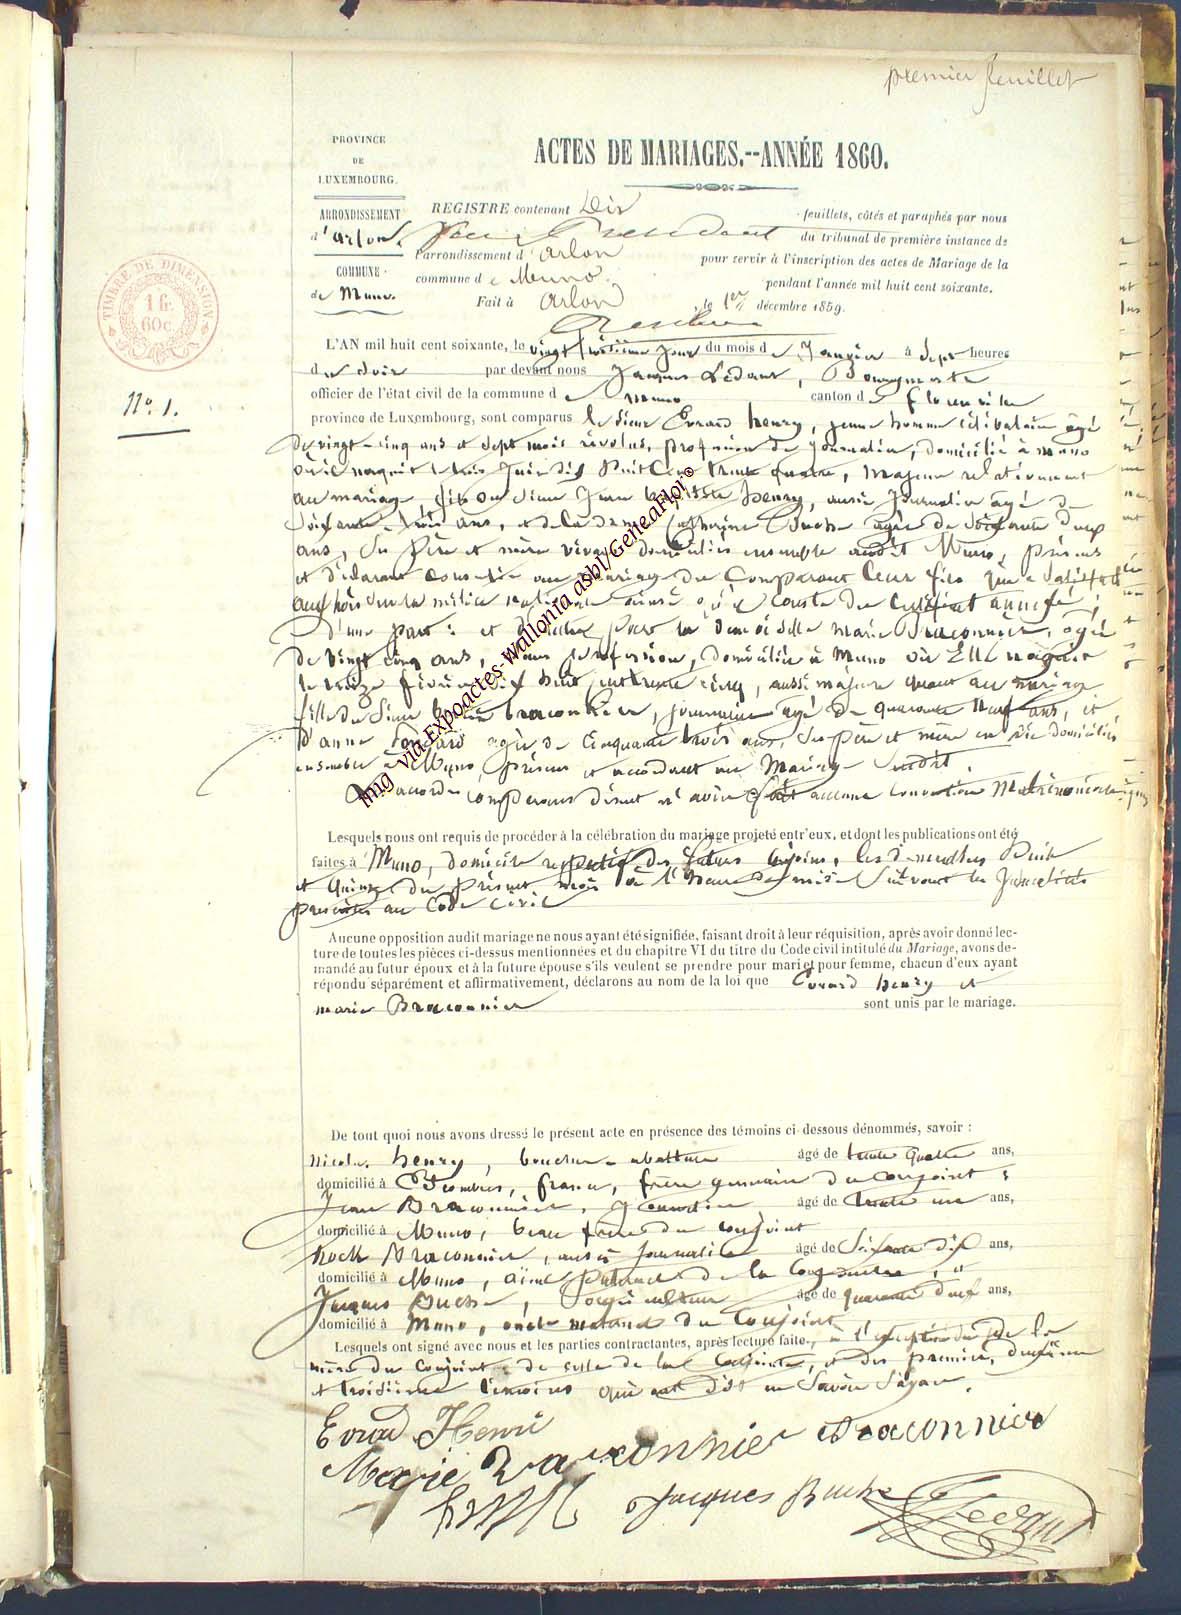 premier feuillet
PROVINCE
DE
LUXEMBOURG.
ARRONDISSEMENT
d'Arlon.
COMMUNE
de Muno.
TIMBRE DE DIMENSION
1 fr.
60 c.
N° 1.
ACTES DE MARIAGES.--ANNÉE 1860.
REGISTRE contenant Dix feuillets, côtés et paraphés par nous
Président du tribunal de première instance de
l'arrondissement d'Arlon pour servir à l'inscription des actes de Mariage de la
commune de Muno pendant l'année mil huit cent soixante.
Fait à Arlon, le 1er décembre 1859.
L'AN mil huit cent soixante, le vingt huitième jour du mois de Janvier à sept heures
du soir par devant nous Jacques Lédant, Bourgmestre
officier de l'état civil de la commune de Muno canton de Florenville
province de Luxembourg, sont comparus le sieur Evrard henry, jeune homme célibataire âgé
de vingt-cinq ans et sept mois révolus, profession de journalier, domicilié à Muno
où il naquit le trois Juin dix huit Cent trente quatre, majeur relativement
au mariage fils du sieur Jean Baptiste henry, aussi Journalier âgé de
Soixante trois ans, et de la dame Catherine Buche agée de Soixante deux
ans, Ses père et mère vivants domiciliés ensemble audit Muno, présens
et déclarant consentir au mariage du Comparant leur fils qui a satisfait
aux lois sur la milice nationale ainsi qu'il conste du certificat annexé;
d'une part : et d'autre part la demoiselle Marie Braconnier, âgée
de vingt cinq ans, sans profession, domiciliée à Muno où Elle naquit
le treize février dix huit cent trente cinq, aussi majeure quant au mariage
fille du Sieur braconnier, journalier agé de quarante neuf ans, et
d'anne agée de Cinquante trois ans, Ses père et mère en vie domiciliés
ensemble à Muno, présens et accordant au Mariage susdit.
comparans disent n'avoir fait aucune convention Matrimoniale
Lesquels nous ont requis de procéder à la célébration du mariage projeté entr'eux, et dont les publications ont été
faites à Muno, domicile respectif des futurs conjoins, les dimanches huit
et quinze du présent mois à l'heure de midi suivant les formalités
prescrites au Code Civil
Aucune opposition audit mariage ne nous ayant été signifiée, faisant droit à leur réquisition, après avoir donné lec-
ture de toutes les pièces ci-dessus mentionnées et du chapitre VI du titre du Code civil intitulé du Mariage, avons de-
mandé au futur époux et à la future épouse s'ils veulent se prendre pour mari et pour femme, chacun d'eux ayant
répondu séparément et affirmativement, déclarons au nom de la loi que Evrard henry et
marie Braconnier sont unis par le mariage.
De tout quoi nous avons dressé le présent acte en présence des témoins ci-dessous dénommés, savoir :
Nicolas henry, âgé de trente quatre ans,
domicilié à france, frère germain du conjoint ;
Jean Braconnier, âgé de trente un ans,
domicilié à Muno, beau frère du conjoint
Roch Braconnier, aussi Journalier âgé de Soixante dix ans,
domicilié à Muno, aïeul paternel de la conjointe,
Jacques Buche, âgé de quarante deux ans,
domicilié à Muno, oncle maternel du Conjoint
Lesquels ont signé avec nous et les parties contractantes, après lecture faite, à l'exception de la
mère du conjoint, de celle de la conjointe, et des premier, deuxième
et troisième témoins qui ont dit ne Savoir Signer.
Evrad Henri
Marie Braconnier Braconnier
Jacques Buche Ledant
img via Expoactes-Wallonia asbl/GeneaFlor©